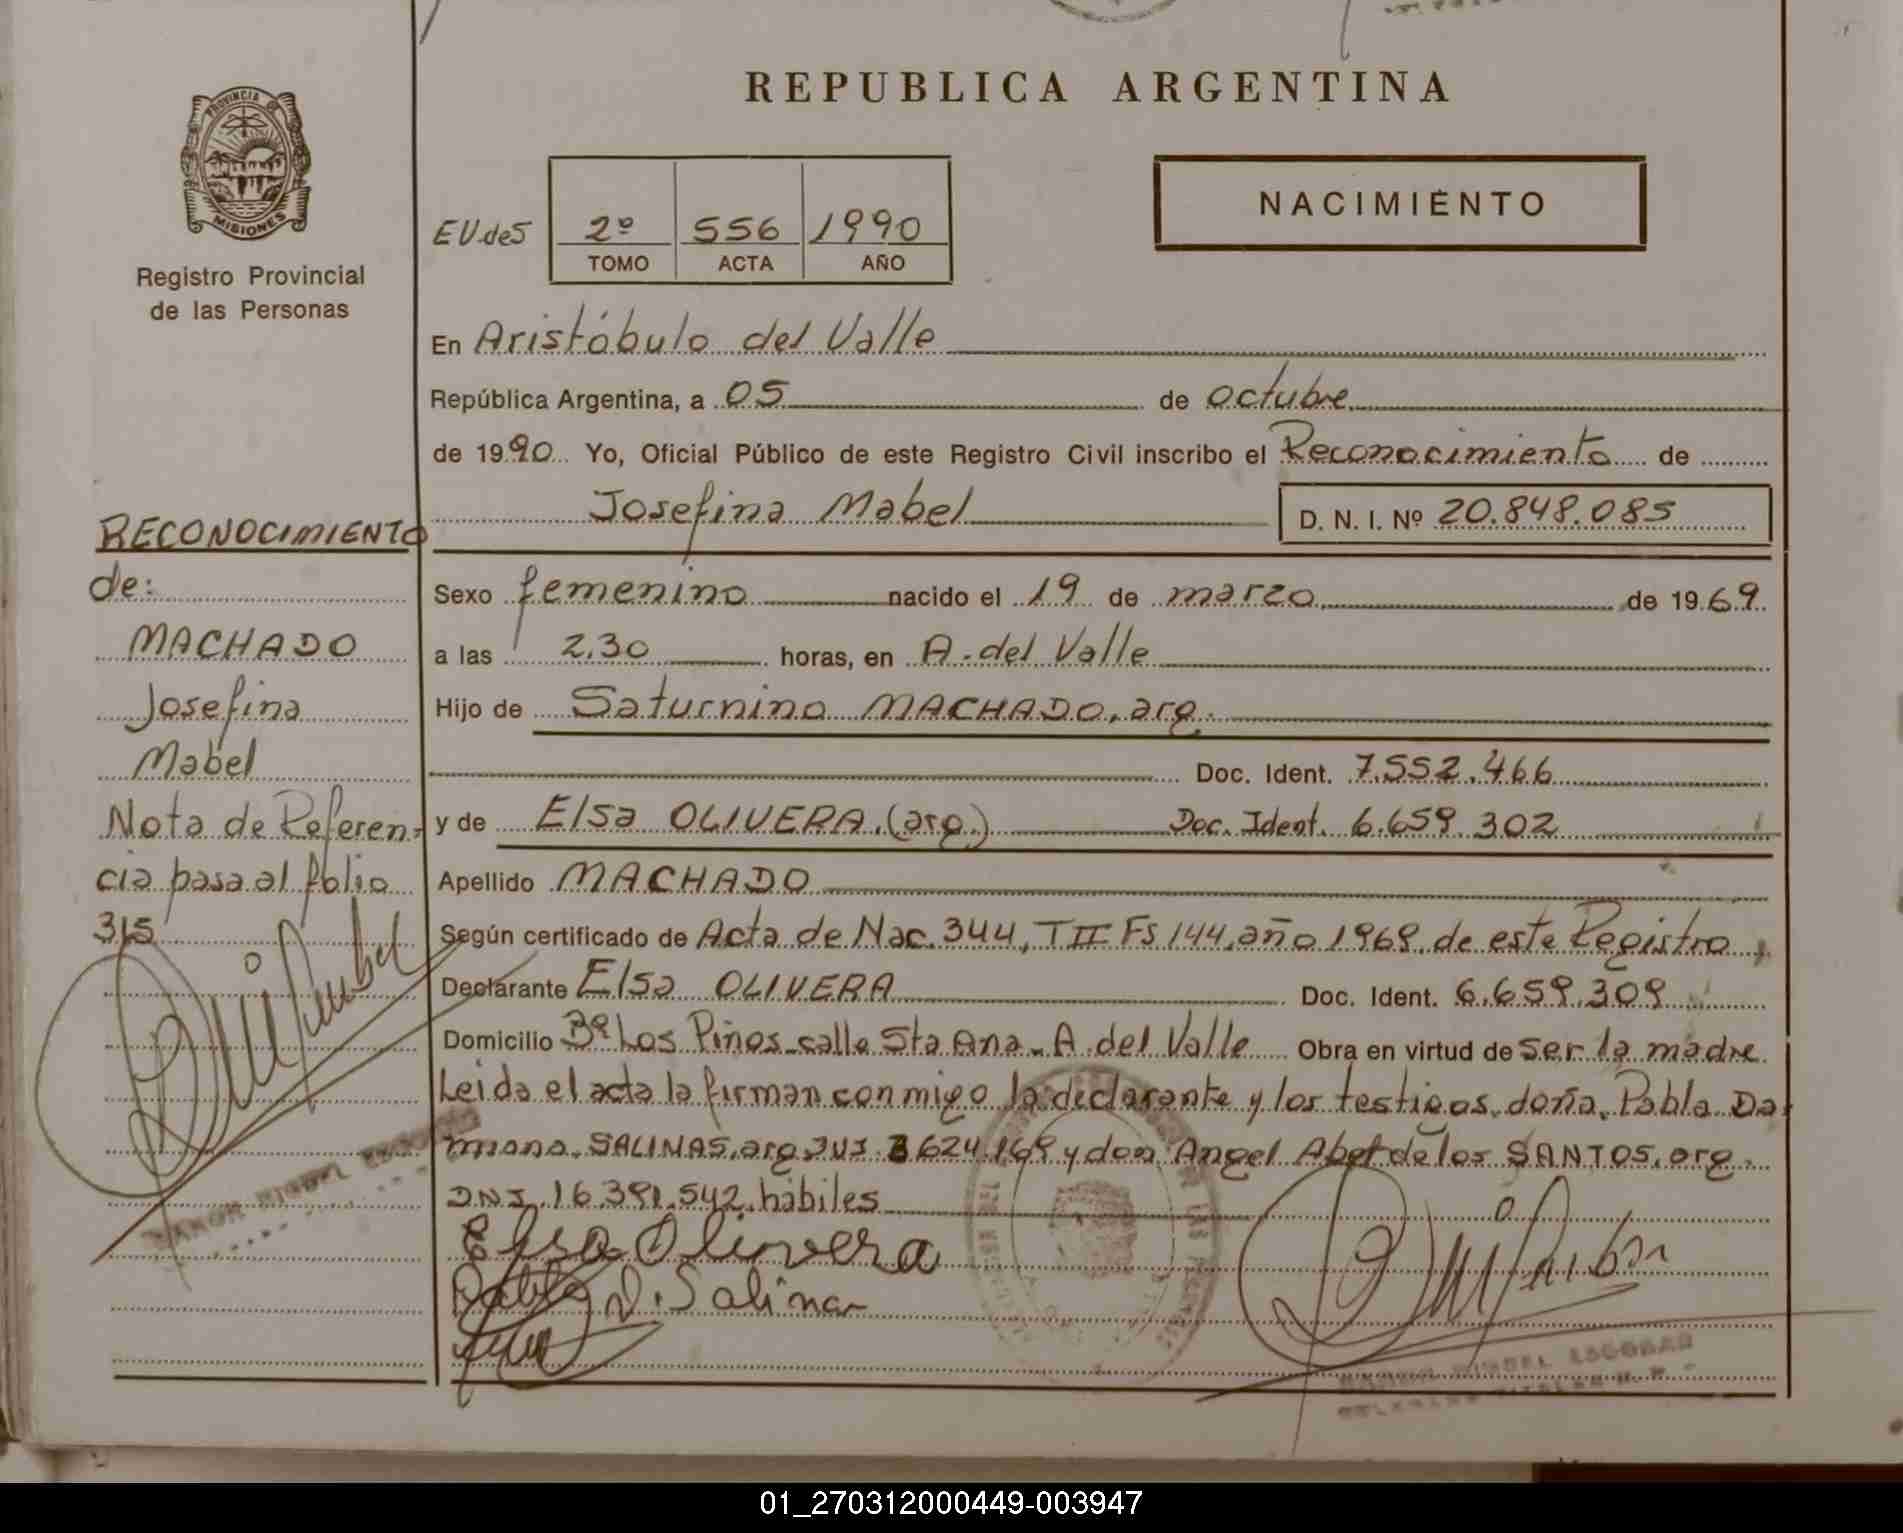 REPUBLICA ARGENTINA
PROVINCIA DE
MISIONES
Registro Provincial
de las Personas
NACIMIENTO
EU.deS 2º 556 1990
TOMO ACTA AÑO
En Aristóbulo del Valle
República Argentina, a 05 de octubre
de 1990 Yo, Oficial Público de este Registro Civil inscribo el Reconocimiento de
Josefina Mabel D. N. I. Nº 20.848.085
Sexo femenino nacido el 19 de marzo de 1969
a las 2.30 horas, en A. del Valle
Hijo de Saturnino MACHADO, arg.
Doc. Ident. 7.552.466
y de Elsa OLIVERA.(arg.) Doc. Ident. 6.659.302
Apellido MACHADO
Según certificado de Acta de Nac. 344, T II Fs 144, año 1969, de este Registro
Declarante Elsa OLIVERA Doc. Ident. 6.659.309
Domicilio Bº Los Pinos calle Sta Ana. A. del Valle Obra en virtud de ser la madre
Leida el acta la firman conmigo la declarante y los testigos, doña, Pabla Da
miana SALINAS, arg. 3624.169 y don Angel Abel de los SANTOS, arg.
DNI. 16.391.542, hábiles
Elsa Olivera
Pabla D. Salinas
RAMON MIGUEL ESCOBAR
RECONOCIMIENTO
de:
MACHADO
Josefina
Mabel
Nota de Referen-
cia pasa al folio
315
RAMON MIGUEL ESCOBAR
01_270312000449-003947